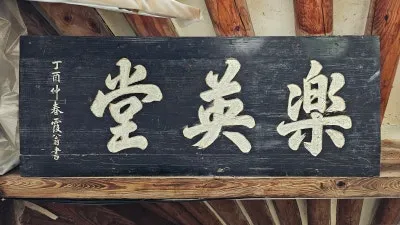 楽英堂
丁酉仲春霞翁書